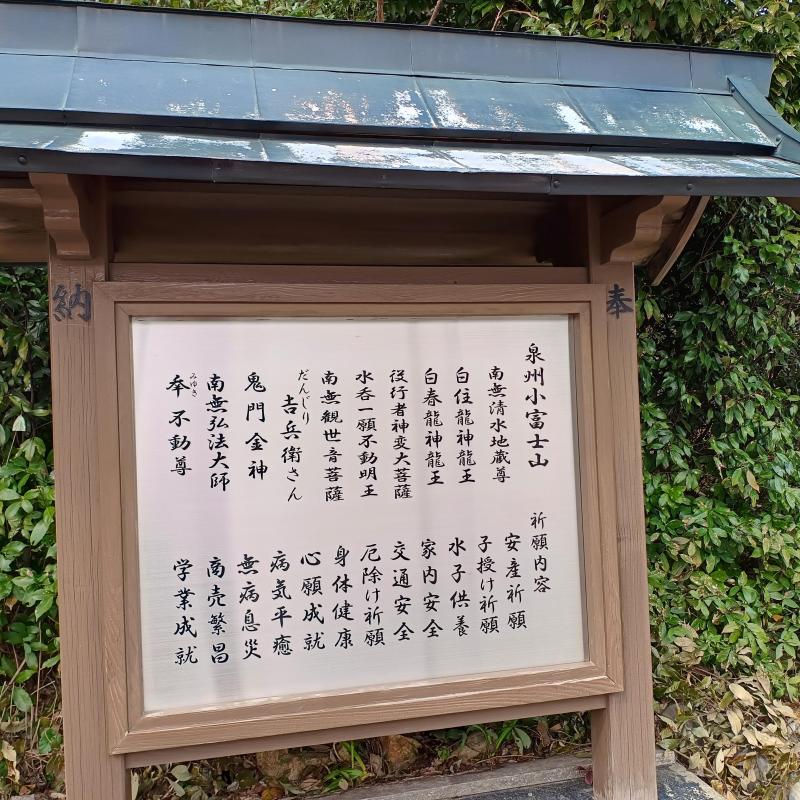 奉
納
泉州小富士山
南無清水地蔵尊
白住龍神龍王
白春龍神龍王
役行者神変大菩薩
水呑一願不動明王
南無観世音菩薩
だんじり
吉兵衛さん
鬼門金神
南無弘法大師
みゆき
𡴭不動尊
祈願内容
安産祈願
子授け祈願
水子供養
家内安全
交通安全
厄除け祈願
身体健康
心願成就
病気平癒
無病息災
南売繁昌
学業成就